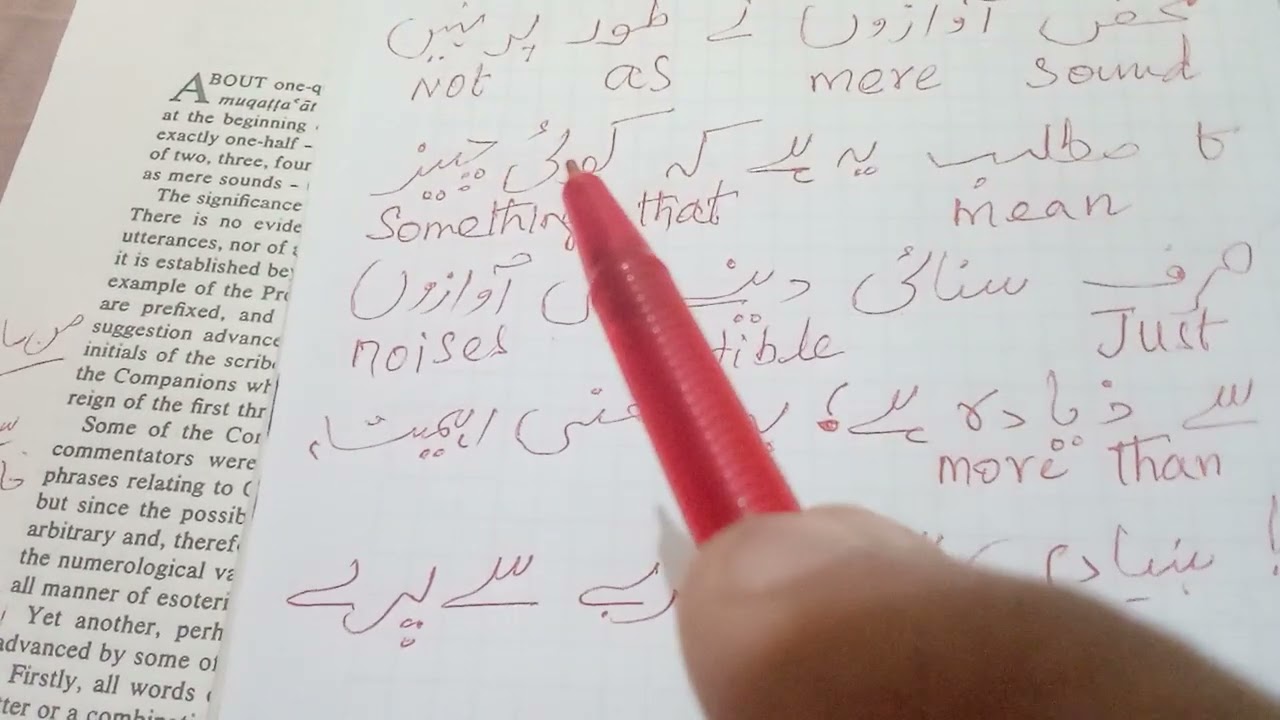 ABOUT one-q
muqaṭṭaʿāt
at the beginning
exactly one-half –
of two, three, four
as mere sounds –
The significance
There is no evide
utterances, nor of
it is established be
example of the Pro
are prefixed, and
suggestion advance
initials of the scribe
the Companions wh
reign of the first thr
Some of the Cor
commentators were
phrases relating to
but since the possib
arbitrary and, theref
the numerological va
all manner of esoteri
Yet another, perh
advanced by some of
Firstly, all words
tter or a combinati
محض آوازوں کے طور پر نہیں
Not as mere Sound
کا مطلب یہ ہے کہ کوئی چیز
Something that mean
صرف سنائی دینے آوازوں
noises tible Just
سے ذیادہ ہے؛ اہمیت
more than
بنیادی سے پرے